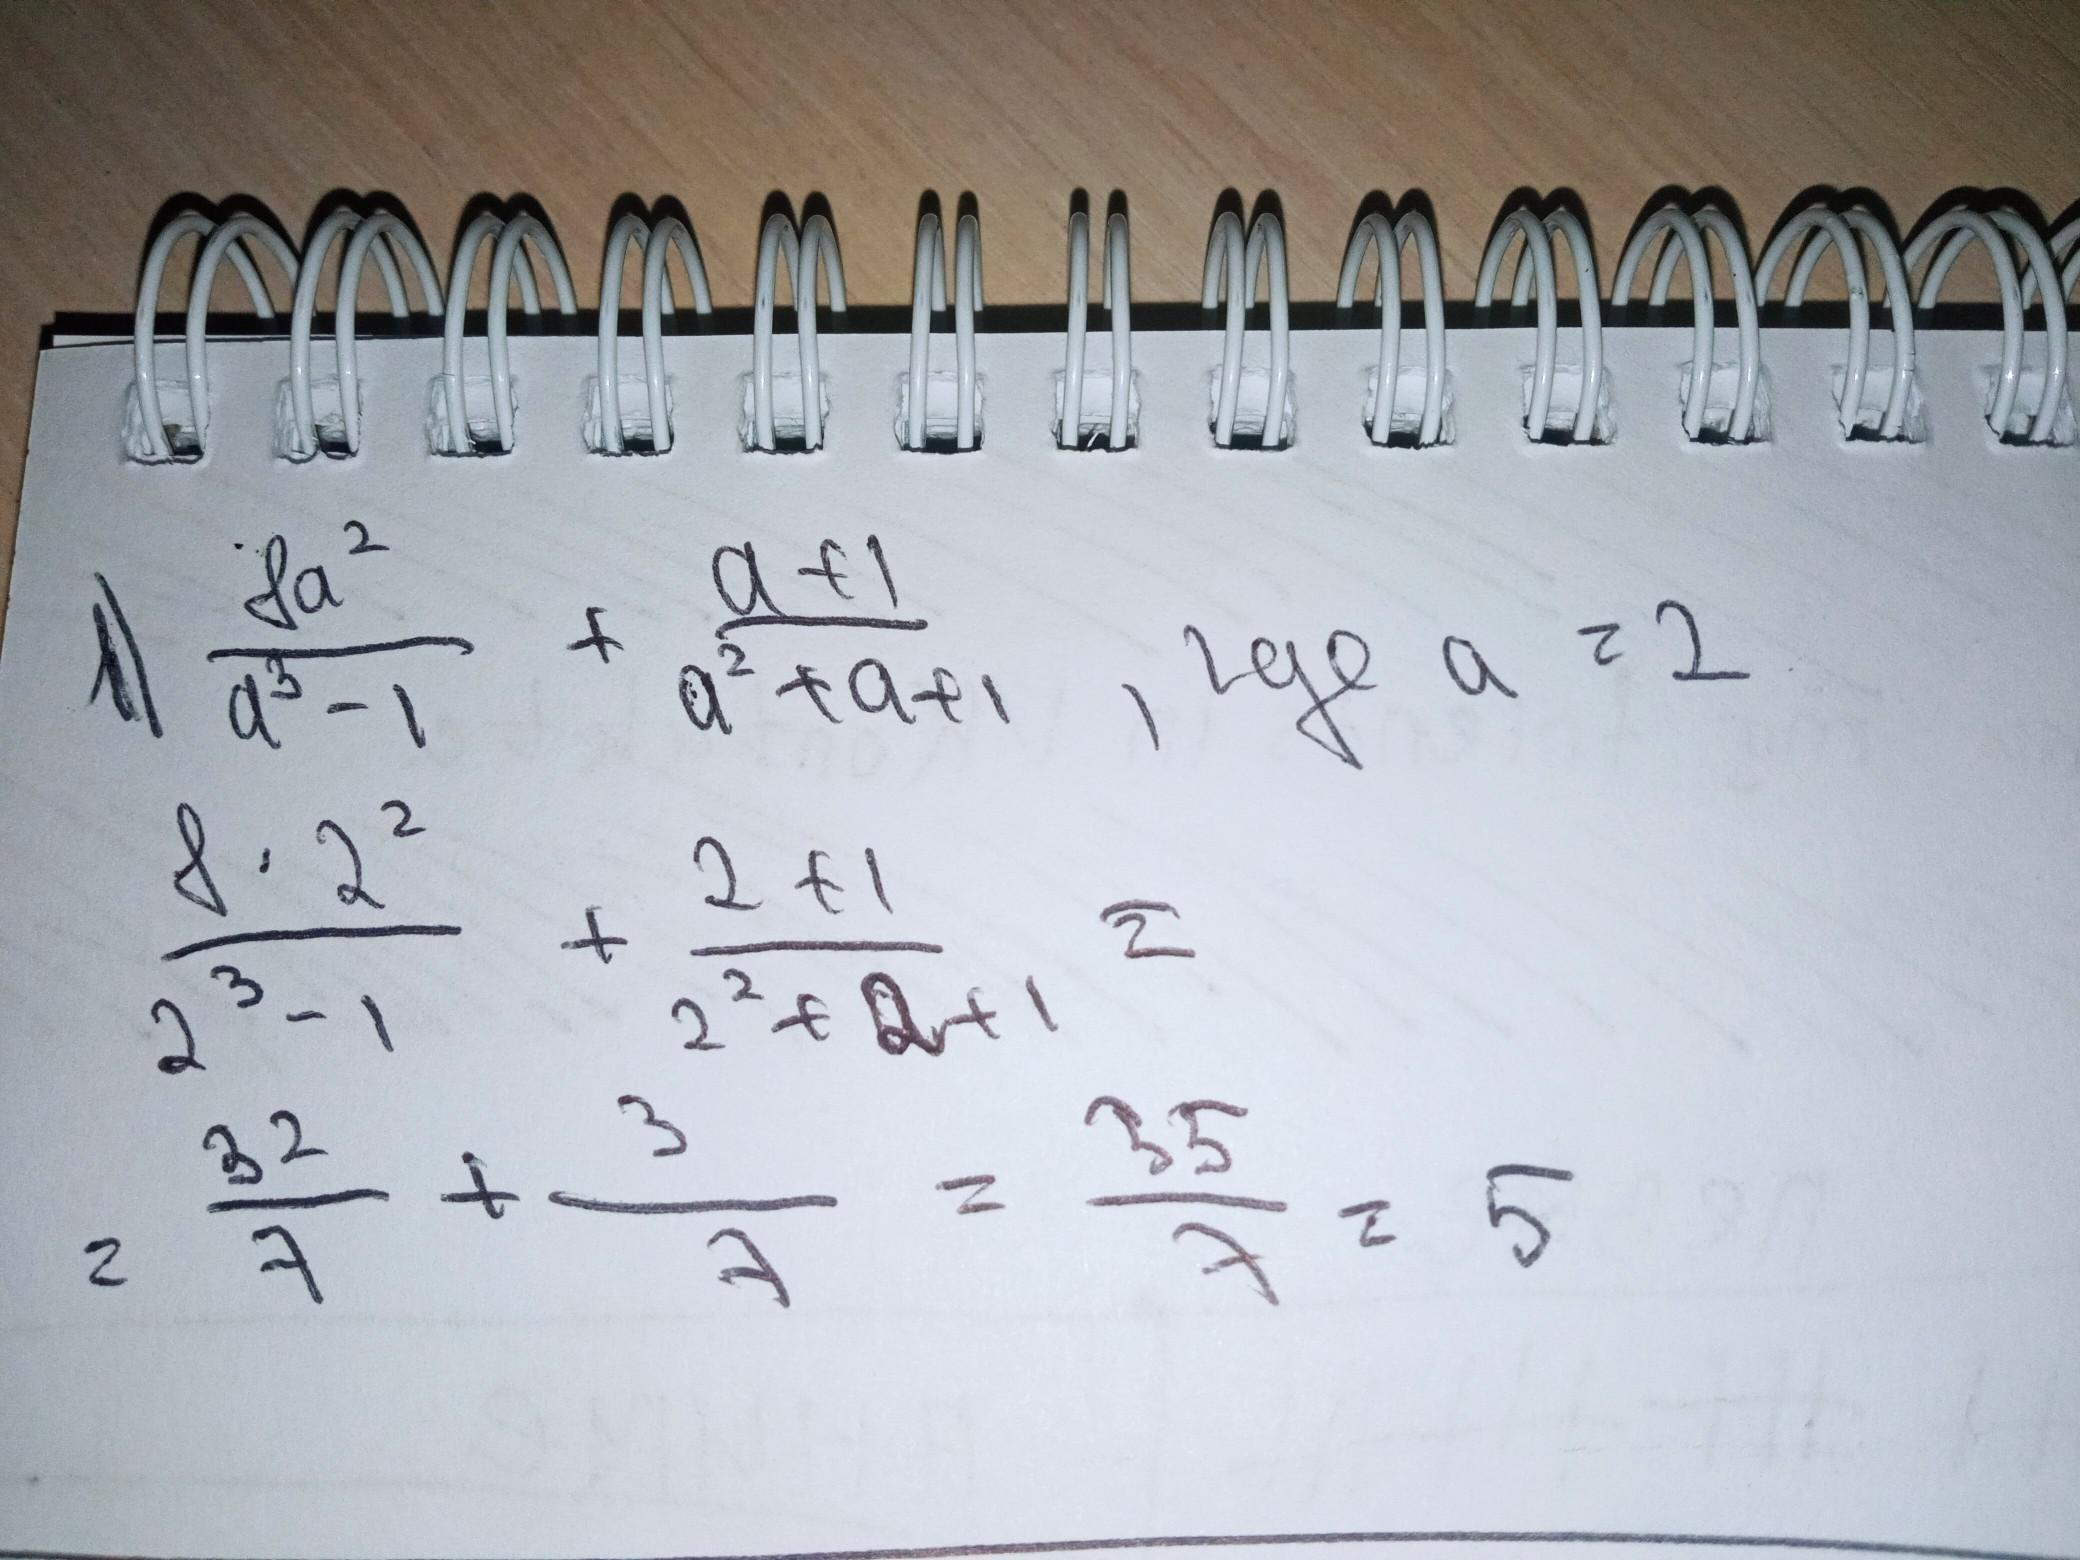 1) 8a²/(a³-1) + (a+1)/(a²+a+1), где a = 2
(8·2²)/(2³-1) + (2+1)/(2²+2+1) =
= 32/7 + 3/7 = 35/7 = 5